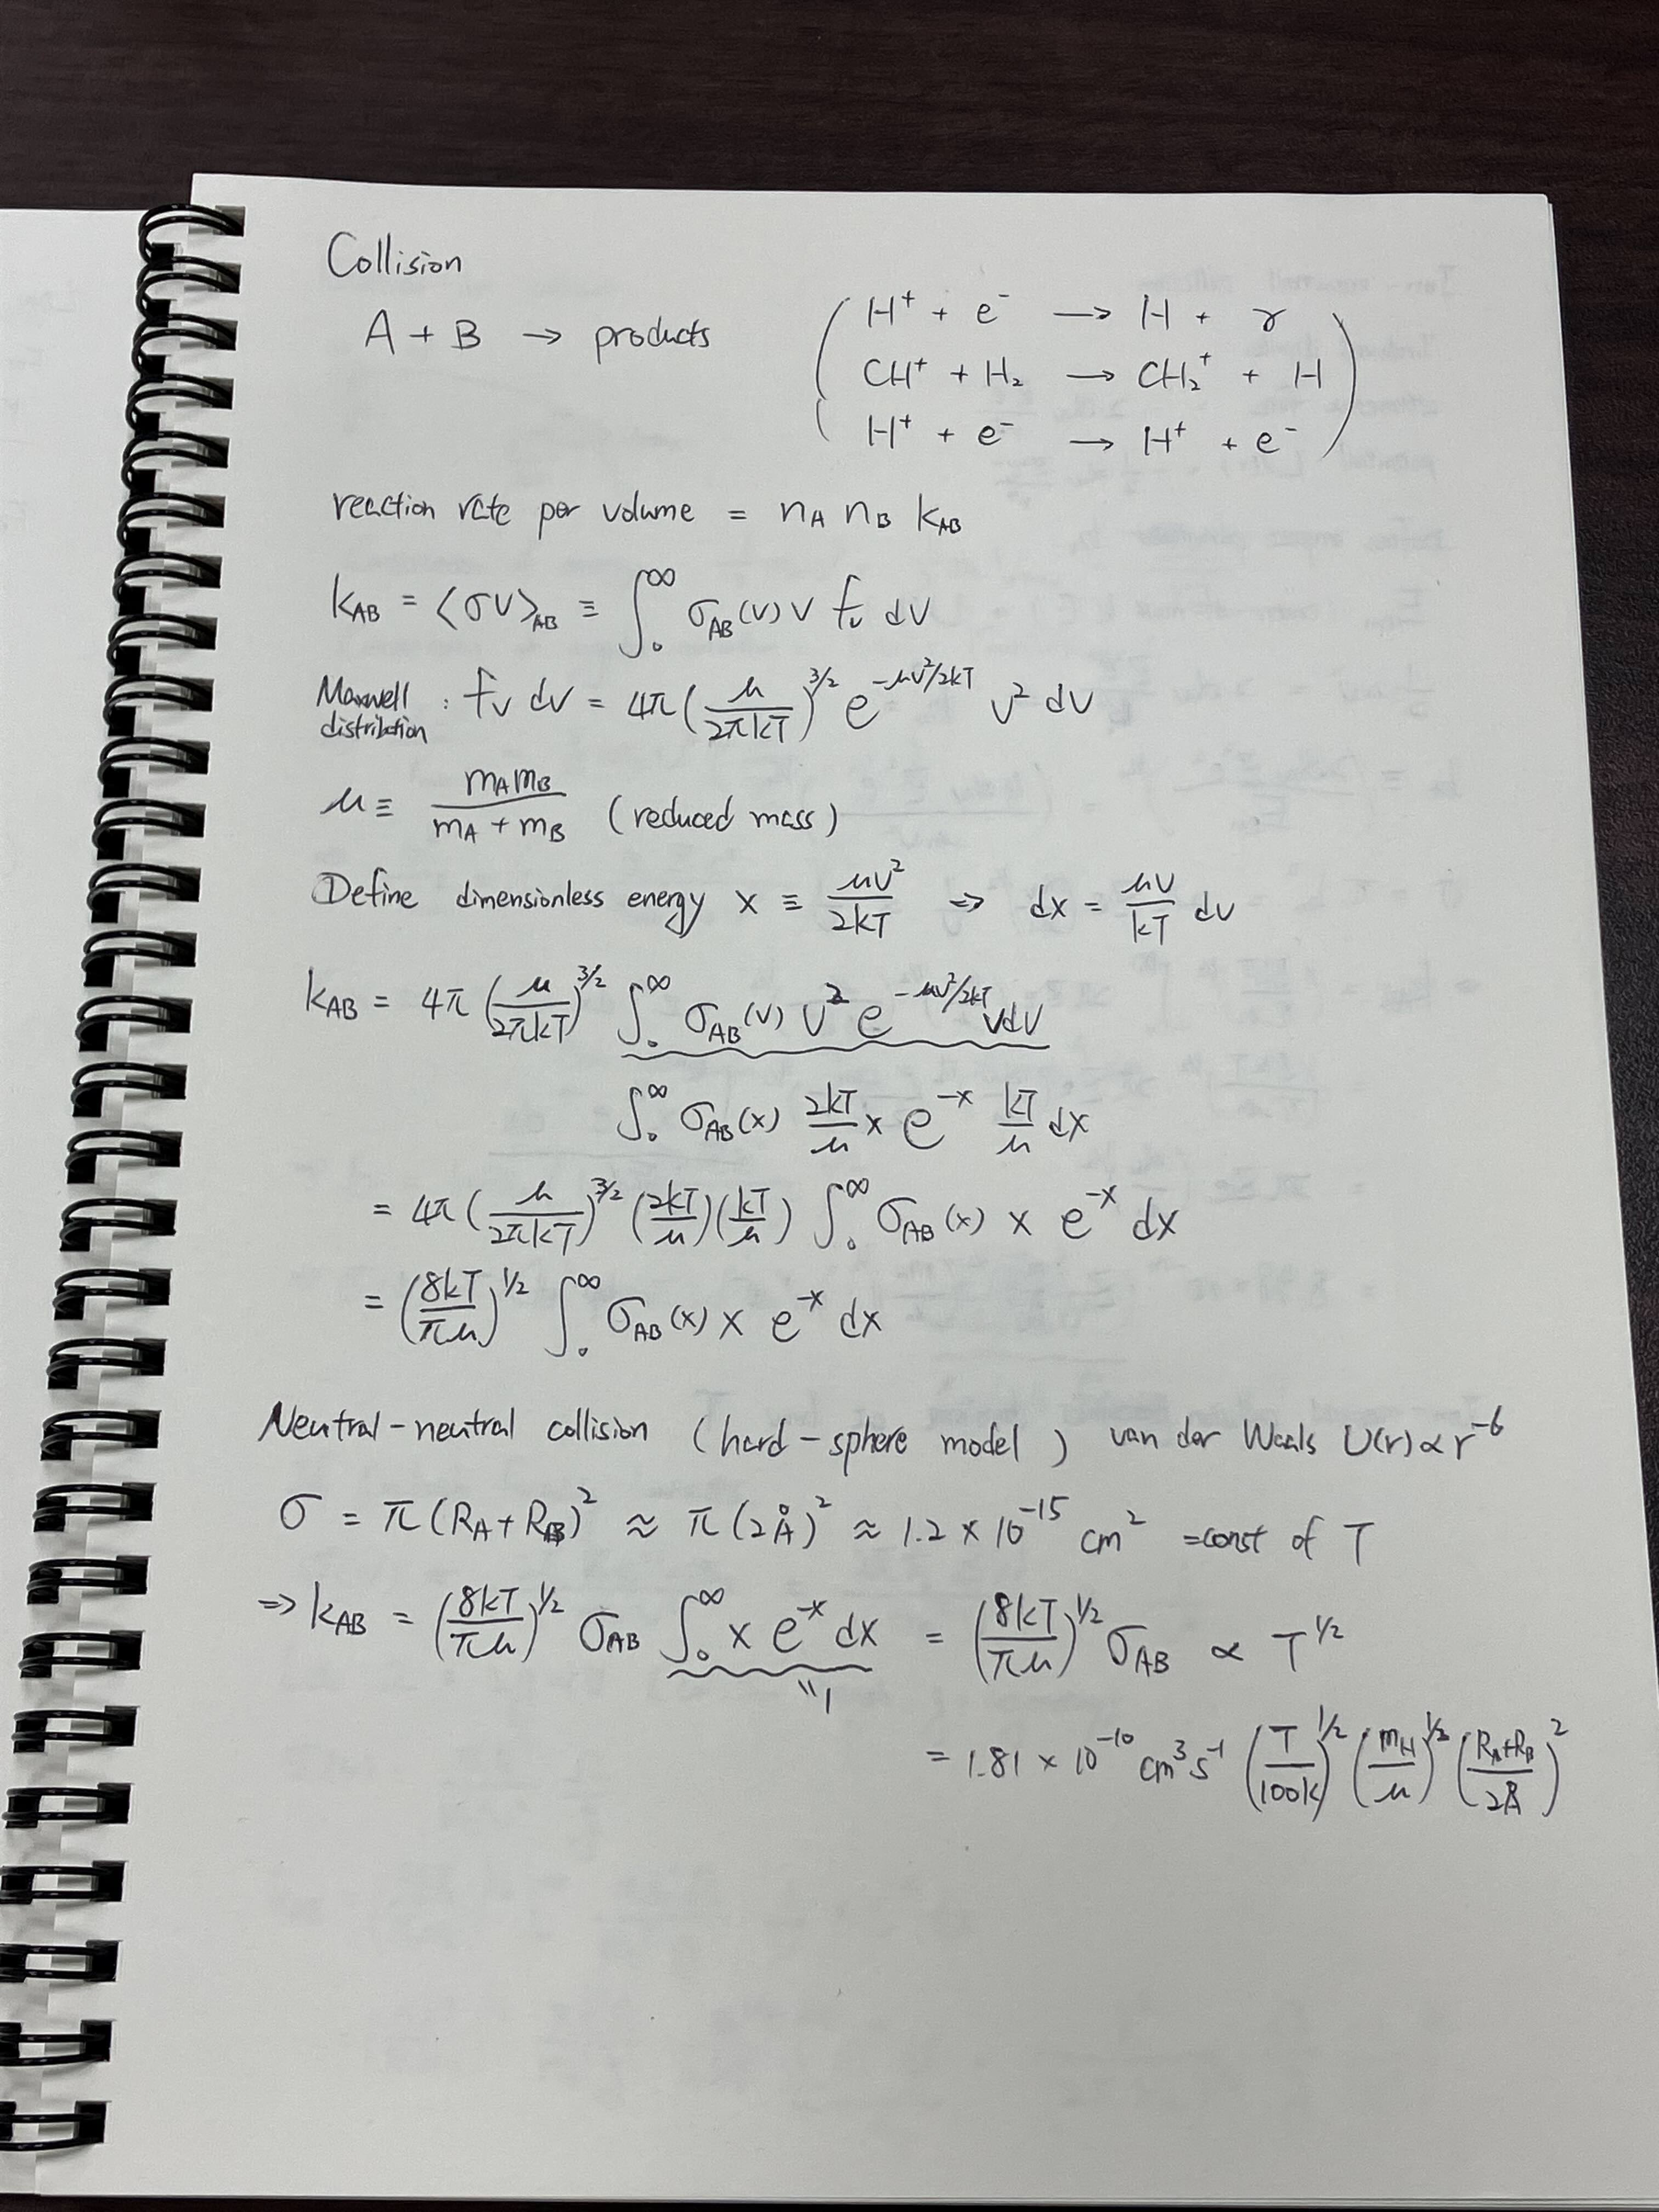 Collision
A + B → products
H⁺ + e⁻ → H + γ
CH⁺ + H₂ → CH₂⁺ + H
H⁺ + e⁻ → H⁺ + e⁻
reaction rate per volume = n_A n_B k_AB
k_AB = ⟨σv⟩_AB ≡ ∫₀^∞ σ_AB(v) v f_v dv
Maxwell distribution : f_v dv = 4π (μ/2πkT)^{3/2} e^{-μv²/2kT} v² dv
μ ≡ m_A m_B / (m_A + m_B) (reduced mass)
Define dimensionless energy x ≡ μv²/2kT ⇒ dx = μv/kT dv
k_AB = 4π (μ/2πkT)^{3/2} ∫₀^∞ σ_AB(v) v² e^{-μv²/2kT} v dv
∫₀^∞ σ_AB(x) 2kT/μ x e^{-x} kT/μ dx
= 4π (μ/2πkT)^{3/2} (2kT/μ)(kT/μ) ∫₀^∞ σ_AB(x) x e^{-x} dx
= (8kT/πμ)^{1/2} ∫₀^∞ σ_AB(x) x e^{-x} dx
Neutral-neutral collision (hard-sphere model) van der Waals U(r) ∝ r⁻⁶
σ = π(R_A + R_B)² ≈ π(2Å)² ≈ 1.2 × 10⁻¹⁵ cm² = const of T
⇒ k_AB = (8kT/πμ)^{1/2} σ_AB ∫₀^∞ x e^{-x} dx = (8kT/πμ)^{1/2} σ_AB ∝ T^{1/2}
"1
= 1.81 × 10⁻¹⁰ cm³ s⁻¹ (T/100K)^{1/2} (m_H/μ)^{1/2} (R_A+R_B/2Å)²